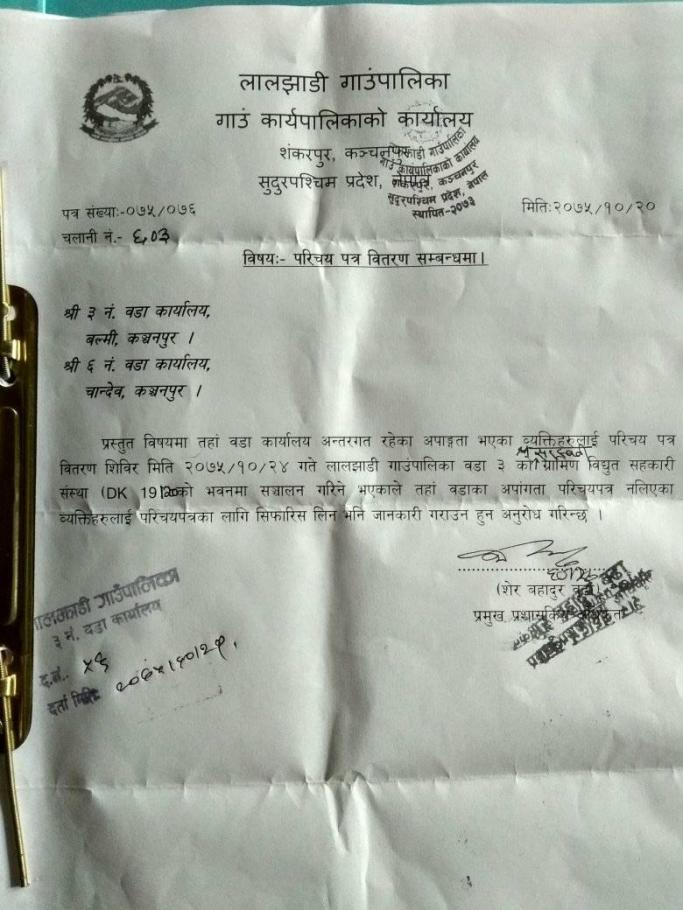 लालझाडी गाउंपालिका
गाउं कार्यपालिकाको कार्यालय
शंकरपुर, कञ्चनपुर
सुदुरपश्चिम प्रदेश, नेपाल
लालझाडी गाउंपालिका
गाउं कार्यपालिकाको कार्यालय
शंकरपुर, कञ्चनपुर
सुदुरपश्चिम प्रदेश, नेपाल
स्थापित-२०७३
पत्र संख्याः-०७५/०७६
मितिः२०७५/१०/२०
चलानी नं.- ६०३
विषयः- परिचय पत्र वितरण सम्बन्धमा।
श्री ३ नं. वडा कार्यालय,
बल्मी, कञ्चनपुर ।
श्री ६ नं. वडा कार्यालय,
चान्देव, कञ्चनपुर ।
प्रस्तुत विषयमा तहां वडा कार्यालय अन्तरगत रहेका अपाङ्गता भएका व्यक्तिहरुलाई परिचय पत्र
वितरण शिविर मिति २०७५/१०/२४ गते लालझाडी गाउंपालिका वडा ३ को ग्रामिण विद्युत सहकारी
संस्था (DK 19 को भवनमा सञ्चालन गरिने भएकाले तहां वडाका अपांगता परिचयपत्र नलिएका
व्यक्तिहरुलाई परिचयपत्रका लागि सिफारिस लिन भनि जानकारी गराउन हुन अनुरोध गरिन्छ ।
(शेर बहादुर
प्रमुख प्रशासकिय
लालझाडी गाउँपालिका
३ नं. वडा कार्यालय
द.नं.. ५६
दर्ता मितिः २०७५।१०।२१